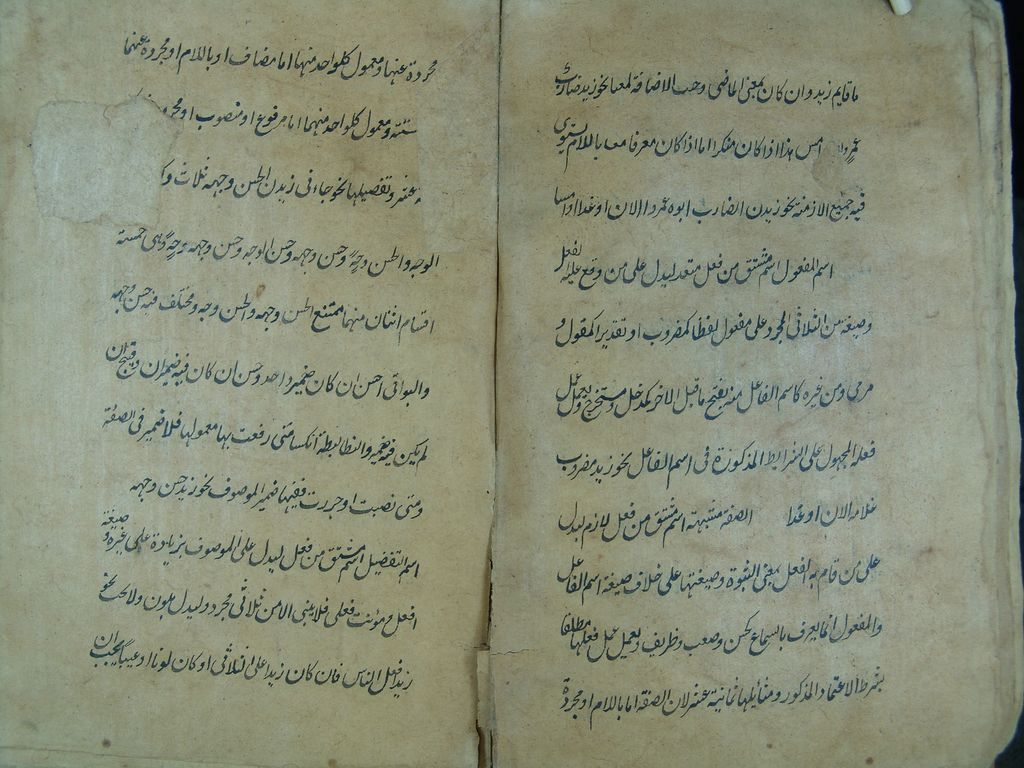 ما قایم زید وان کان بمعنی الماضی وجب الاضافة معنا نحو زید ضارب
عمرو امس هذا اذا کان منکرا اما اذا کان معرفا باللام یستوی
فیه جمیع الازمنة نحو زیدن الضارب ابوه عمروا الان او غدا او امسا
اسم المفعول اسم مشتق من فعل متعد لیدل علی من وقع علیه الفعل
وصیغة من الثلاثی المجرد علی مفعول لفظا کمضروب او تقدیرا کمقول و
مرمی ومن غیره کاسم الفاعل منه بفتح ما قبل الاخر کمدخل ومستخرج ویعمل عمل
فعله المجهول علی الشرایط المذکورة فی اسم الفاعل نحو زید مضروب
غلامه الان او غدا الصفة مشبهة اسم مشتق من فعل لازم لیدل
علی من قام به الفعل بمعنی الثبوة وصیغتها علی خلاف صیغة اسم الفاعل
والمفعول انما یعرف بالسماع کحسن وصعب وظریف ویعمل عمل فعلها مطلقا
بشرط الاعتماد المذکور ومثایلها ثمانیة عشر لان الصفة اما باللام او مجردة
مجردة عنها ومعمول کلواحد منها اما مضاف او باللام او مجردة عنهما
ستته ومعمول کلواحد منهما اما مرفوع او منصوب او مجرور
عشر وتفصیلها نحو جاءنی زیدن الحسن وجهه ثلاث
الوجه والحسن وجه وحسن وجهه وحسن الوجه وحسن وجهه وهی خمسة
اقسام اثنان منها ممتنع الحسن وجهه والحسن وجه ومختلف فیه حسن وجهه
والبواقی احسن ان کان ضمیر واحد وحسن ان کان فیه ضمیران وقبیح ان
لم یکن فیه ضمیر والضابطة انک متی رفعت بها معمولها فلا ضمیر فی الصفة
ومتی نصبت او جررت ففیها ضمیر الموصوف نحو زید حسن وجهه
اسم التفضیل اسم مشتق من فعل لیدل علی الموصوف بزیادة علی غیره وصیغة
افعل ومؤنث فعلی فلا یبنی الا من ثلاثی مجرد ولیدل بلون ولا عیب نحو
زید افضل الناس فان کان زیدا علی الثلاثی او کان لونا او عیبا یجب ان